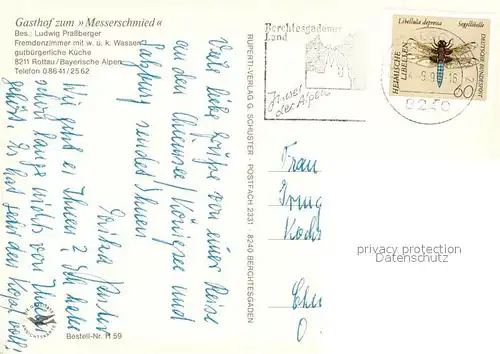 Gasthof zum »Messerschmied«
Bes.: Ludwig Praßberger
Fremdenzimmer mit w. u. k. Wasser
gutbürgerliche Küche
8211 Rottau/Bayerische Alpen
Telefon 0 86 41 / 25 62
Viele liebe Grüße von einer Reise
an den Chiemsee/Königsee und
Salzburg sendet Ihnen
Wie geht es Ihnen? Ich habe
schon lange nichts von Ihnen
gehört. Es hat jeder den Kopf voll!
Bestell-Nr. R 59
RUPERTI-VERLAG G. SCHUSTER · POSTFACH 2331 · 8240 BERCHTESGADEN
Berchtesgadener
Land
der Alpen
8240
Libellula depressa Segellibelle
HEIMISCHE
LIBELLEN
DEUTSCHE BUNDESPOST
60
Frau
privacy protection